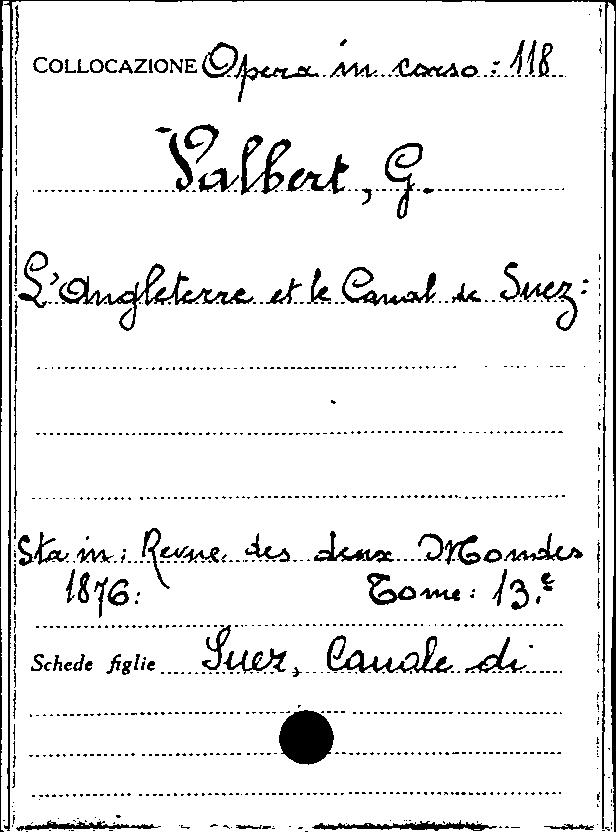 COLLOCAZIONE Opera in corso: 118
Valbert, G.
L'Angleterre et le Canal de Suez:
Sta in: Revue des deux Mondes
1876: Tome: 13.e
Schede figlie Suez, Canale di